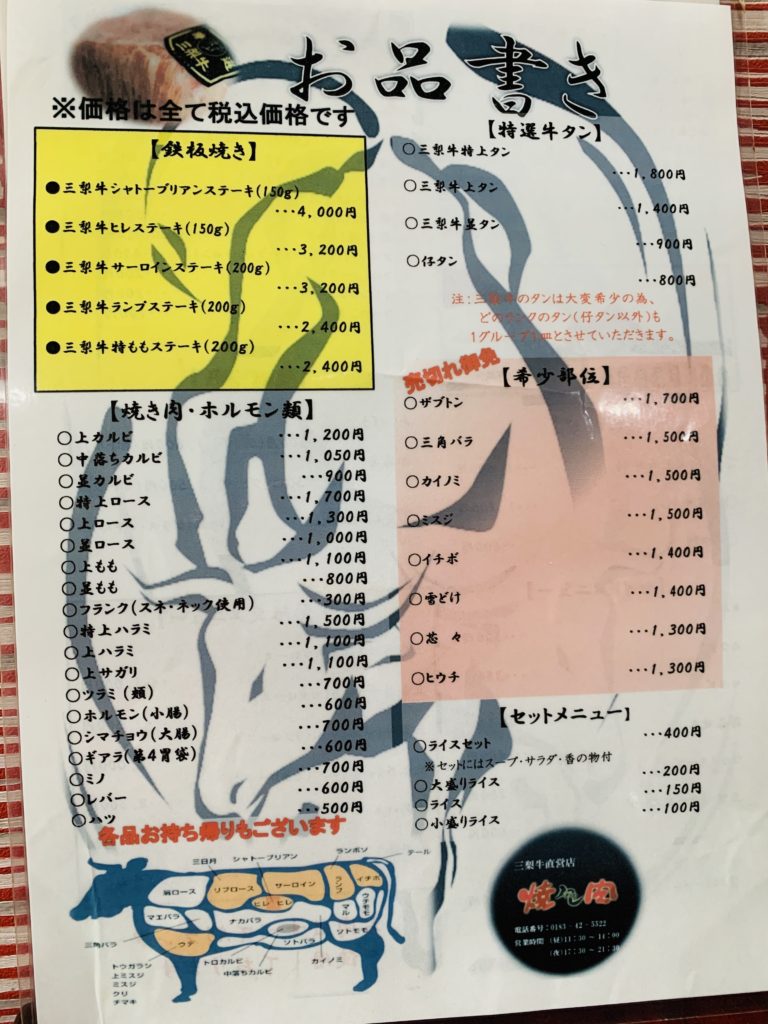 お品書き
※価格は全て税込価格です
【鉄板焼き】
●三梨牛シャトーブリアンステーキ(150g)
…4,000円
●三梨牛ヒレステーキ(150g)
…3,200円
●三梨牛サーロインステーキ(200g)
…3,200円
●三梨牛ランプステーキ(200g)
…2,400円
●三梨牛特ももステーキ(200g)
…2,400円
【焼き肉・ホルモン類】
○上カルビ …1,200円
○中落ちカルビ …1,050円
○並カルビ …900円
○特上ロース …1,700円
○上ロース …1,300円
○並ロース …1,000円
○上もも …1,100円
○並もも …800円
○フランク(スネ・ネック使用) …300円
○特上ハラミ …1,500円
○上ハラミ …1,100円
○上サガリ …1,100円
○ツラミ(頬) …700円
○ホルモン(小腸) …600円
○シマチョウ(大腸) …700円
○ギアラ(第4胃袋) …600円
○ミノ …700円
○レバー …600円
○ハツ …500円
各品お持ち帰りもございます
【特選牛タン】
○三梨牛特上タン
…1,800円
○三梨牛上タン
…1,400円
○三梨牛並タン
…900円
○仔タン
…800円
注:三梨牛のタンは大変希少の為、
どのランクのタン(仔タン以外)も
1グループ1皿とさせていただきます。
売切れ御免
【希少部位】
○ザブトン …1,700円
○三角バラ …1,500円
○カイノミ …1,500円
○ミスジ …1,500円
○イチボ …1,400円
○雪どけ …1,400円
○芯々 …1,300円
○ヒウチ …1,300円
【セットメニュー】
○ライスセット …400円
※セットにはスープ・サラダ・香の物付
○大盛りライス …200円
○ライス …150円
○小盛りライス …100円
三日月
シャトーブリアン
ランボソ
テール
肩ロース
リブロース
サーロイン
ランプ
イチボ
ヒレ
ヒレ
マエバラ
ナカバラ
マル
ウチモモ
ソトモモ
三角バラ
ウデ
ソトバラ
トウガラシ
上ミスジ
ミスジ
クリ
チマキ
トロカルビ
中落ちカルビ
カイノミ
三梨牛直営店
焼肉
電話番号:0183-42-5522
営業時間 (昼)11:30～14:00
(夜)17:30～21:30